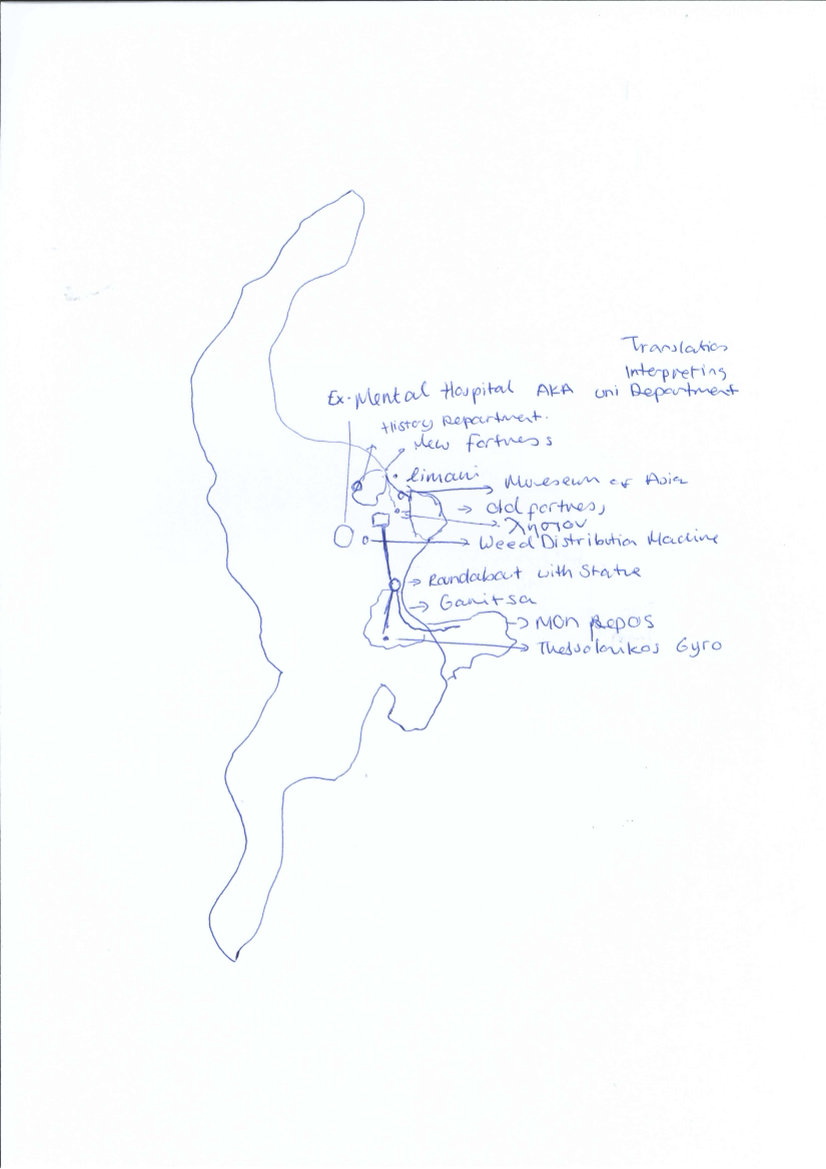 Translation
Interpreting
Ex-Mental Hospital AKA uni Department
History Department.
New Fortress
limani
Museseum of Asia
old fortress
Weed Distribution Machine
Roundabout with Statue
Garitsa
MON REPOS
Thessalonikos Gyro